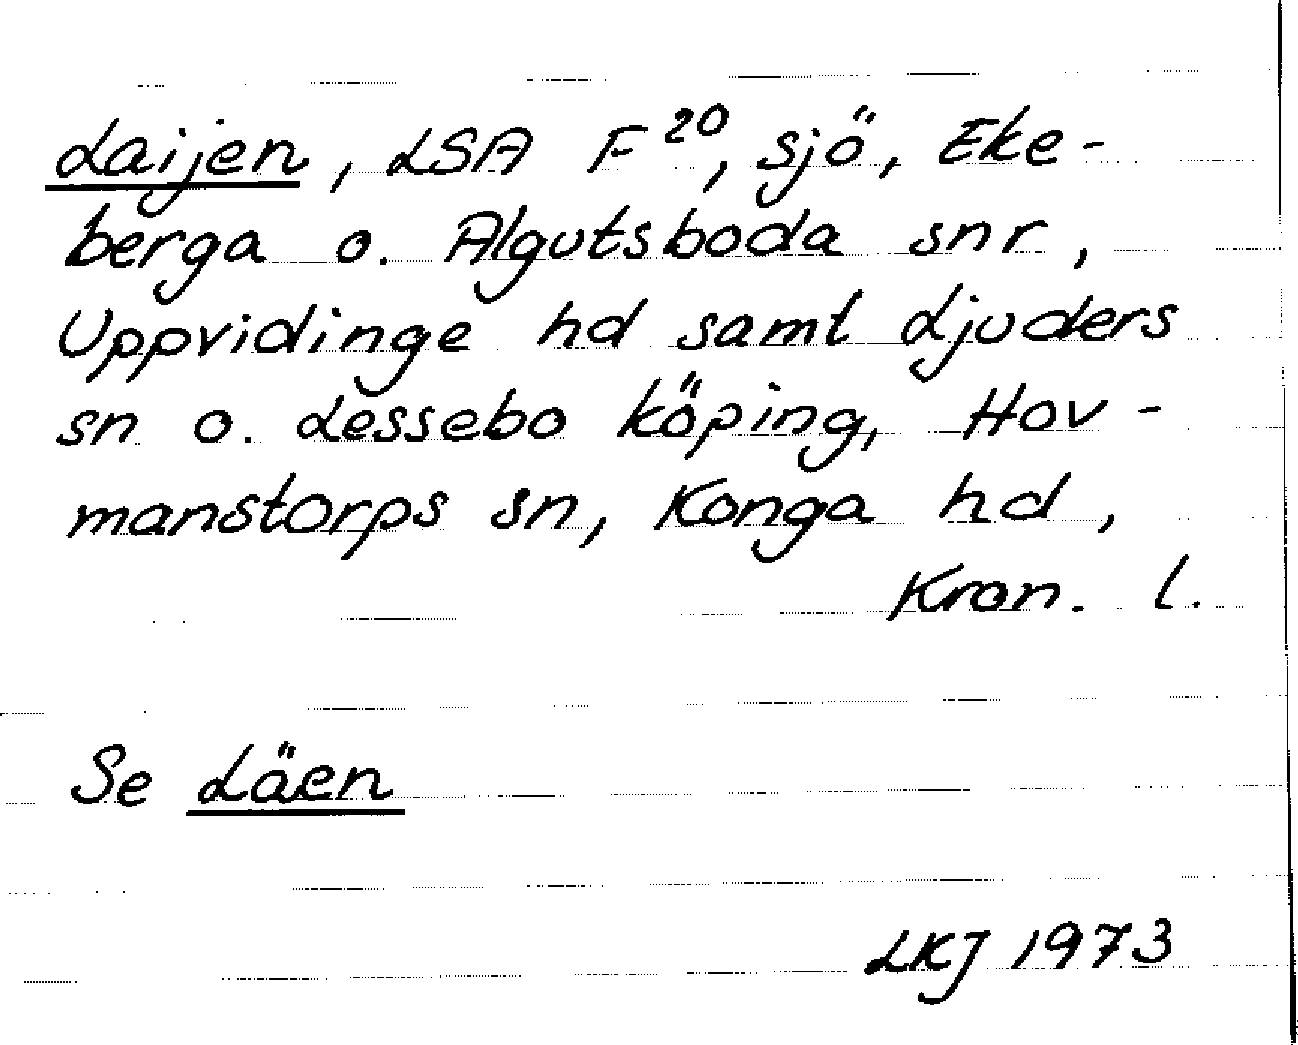 Laijen, LSA F²⁰, sjö, Eke-
berga o. Algutsboda snr,
Uppvidinge hd samt Ljuders
sn o. Lessebo köping, Hov-
manstorps sn, Konga hd,
Kron. l.
Se Läen
LKJ 1973